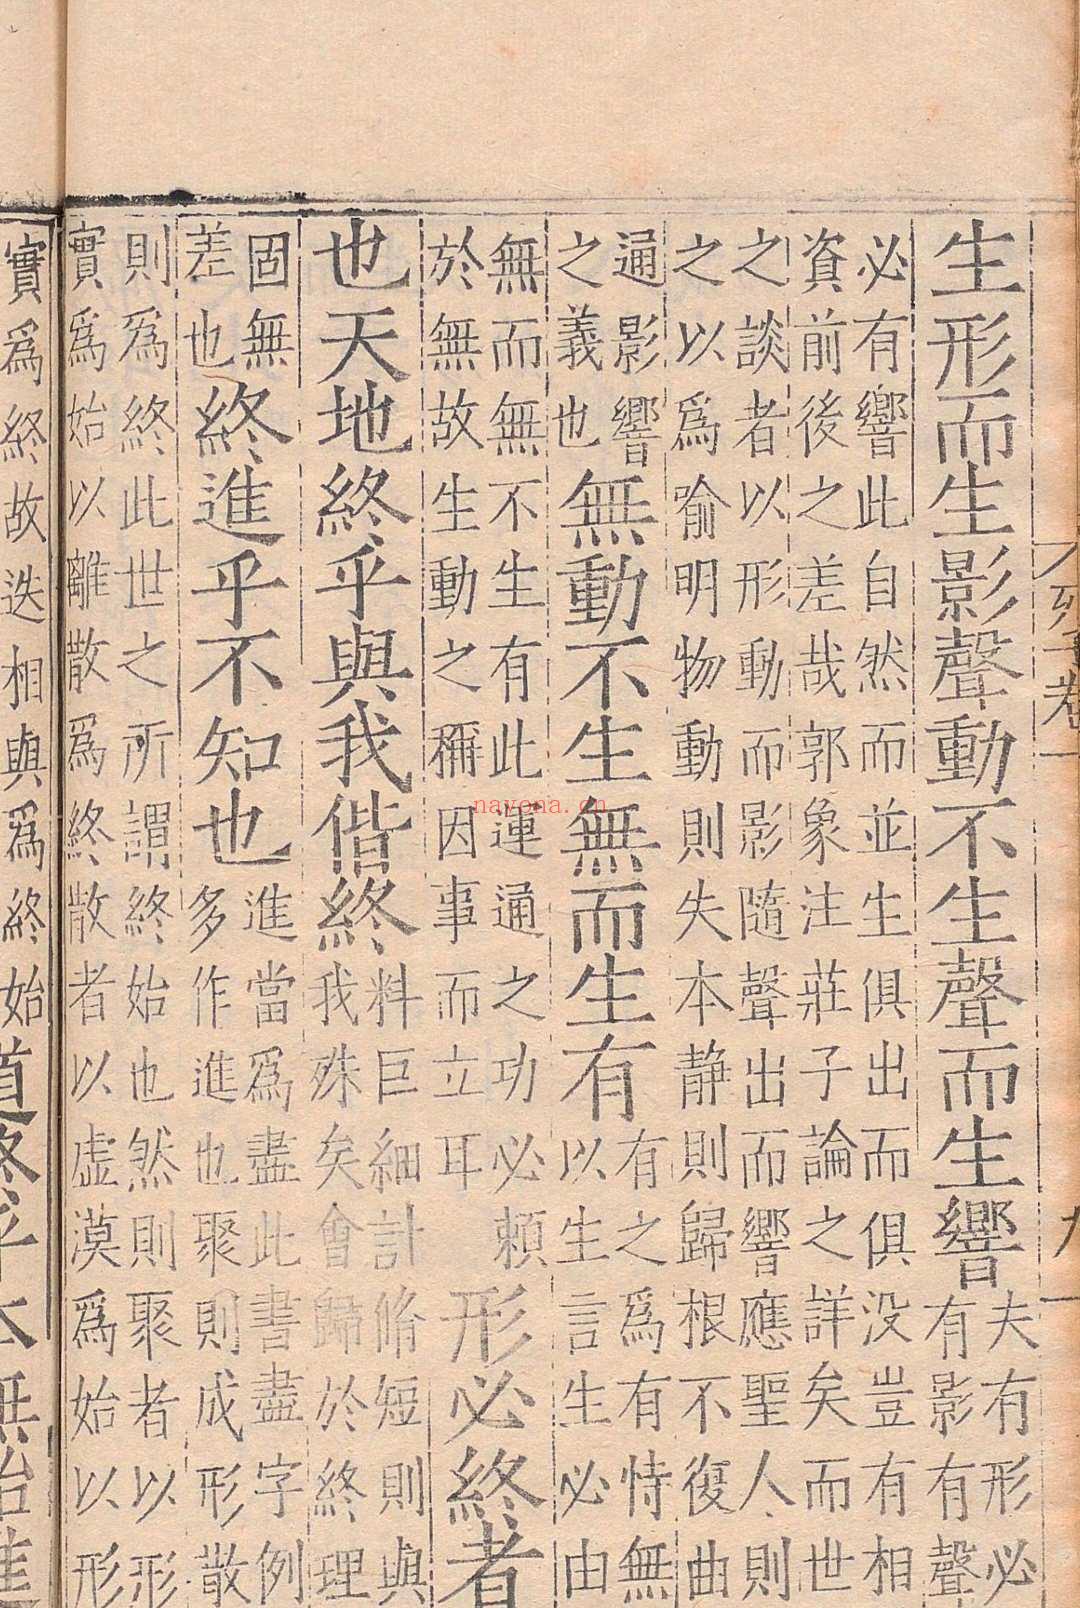 列子卷一 九
生形而生影聲動不生聲而生響夫有形必
有影有聲
必有響此自然而並生俱出而俱没豈有相
資前後之差哉郭象注莊子論之詳矣而世
之談者以形動而影隨聲出而響應聖人則
之以爲喻明物動則失本静則歸根不復曲
通影響
之義也無動不生無而生有有之爲有恃無
以生言生必由
無而無不生有此運通之功必賴
於無故生動之稱因事而立耳形必終者
也天地終乎與我偕終料巨細計脩短則與
我殊矣會歸於終理
固無
差也終進乎不知也進當爲盡此書盡字例
多作進也聚則成形散
則爲終此世之所謂終始也然則聚者以形
實爲始以離散爲終散者以虚漠爲始以形
實爲終故迭相與爲終始道終乎本無始進
nayona.cn